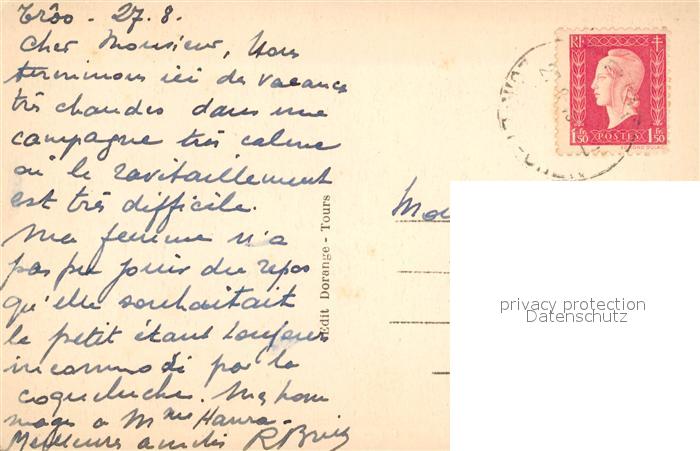 Trôo - 27.8.
Cher Monsieur, Nous
terminons ici des vacances
très chaudes dans une
campagne très calme
où le ravitaillement
est très difficile.
Ma femme n'a
pas pu jouir du repos
qu'elle souhaitait
le petit étant toujours
incommodé par la
coqueluche. Mes hom
mages à Mme Haura.
Meilleures amitiés R
Edit Dorange - Tours
RF
1F50 POSTES 1F50
privacy protection
Datenschutz